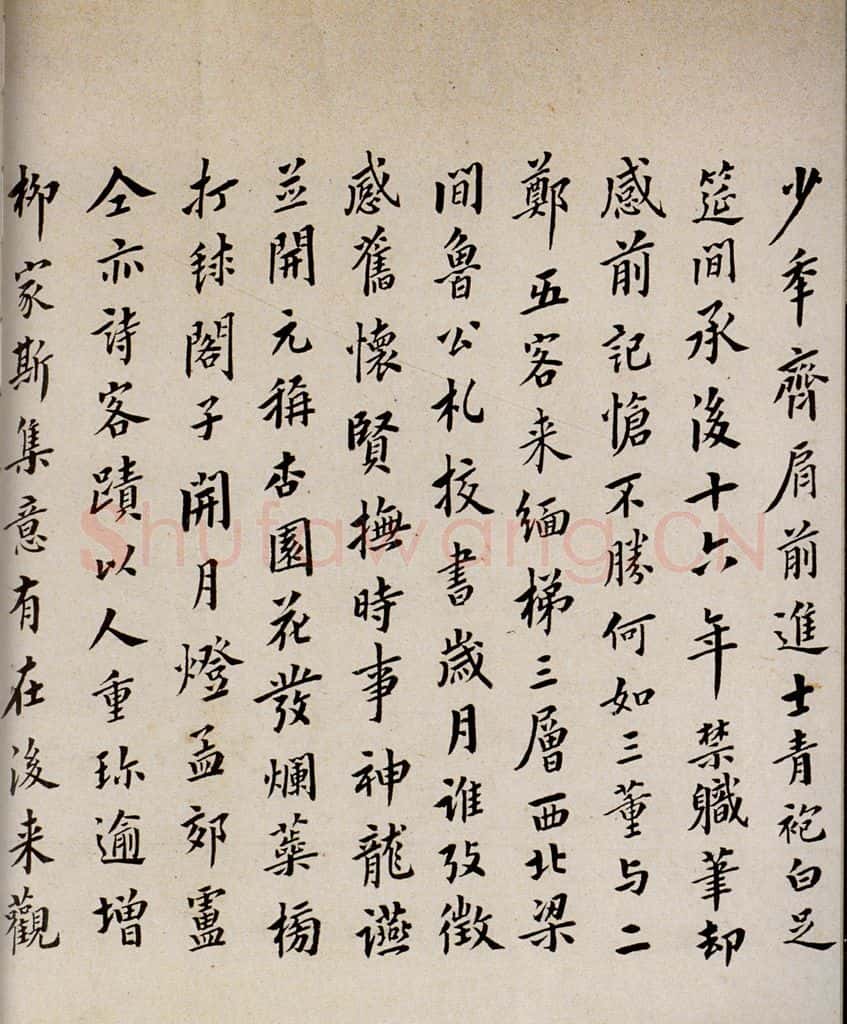 少年齊肩前進士青袍白足
筵間承後十六年禁職筆却
感前記愴不勝何如三董与二
鄭五客来緬梯三層西北梁
間魯公札挍書歲月誰攷徵
感舊懷賢撫時事神龍讌
並開元稱杏園花發爛蘂榜
打毬閣子開月燈孟郊盧
仝亦詩客蹟以人重珎逾增
柳家斯集意有在後来觀
Shufawang.CN